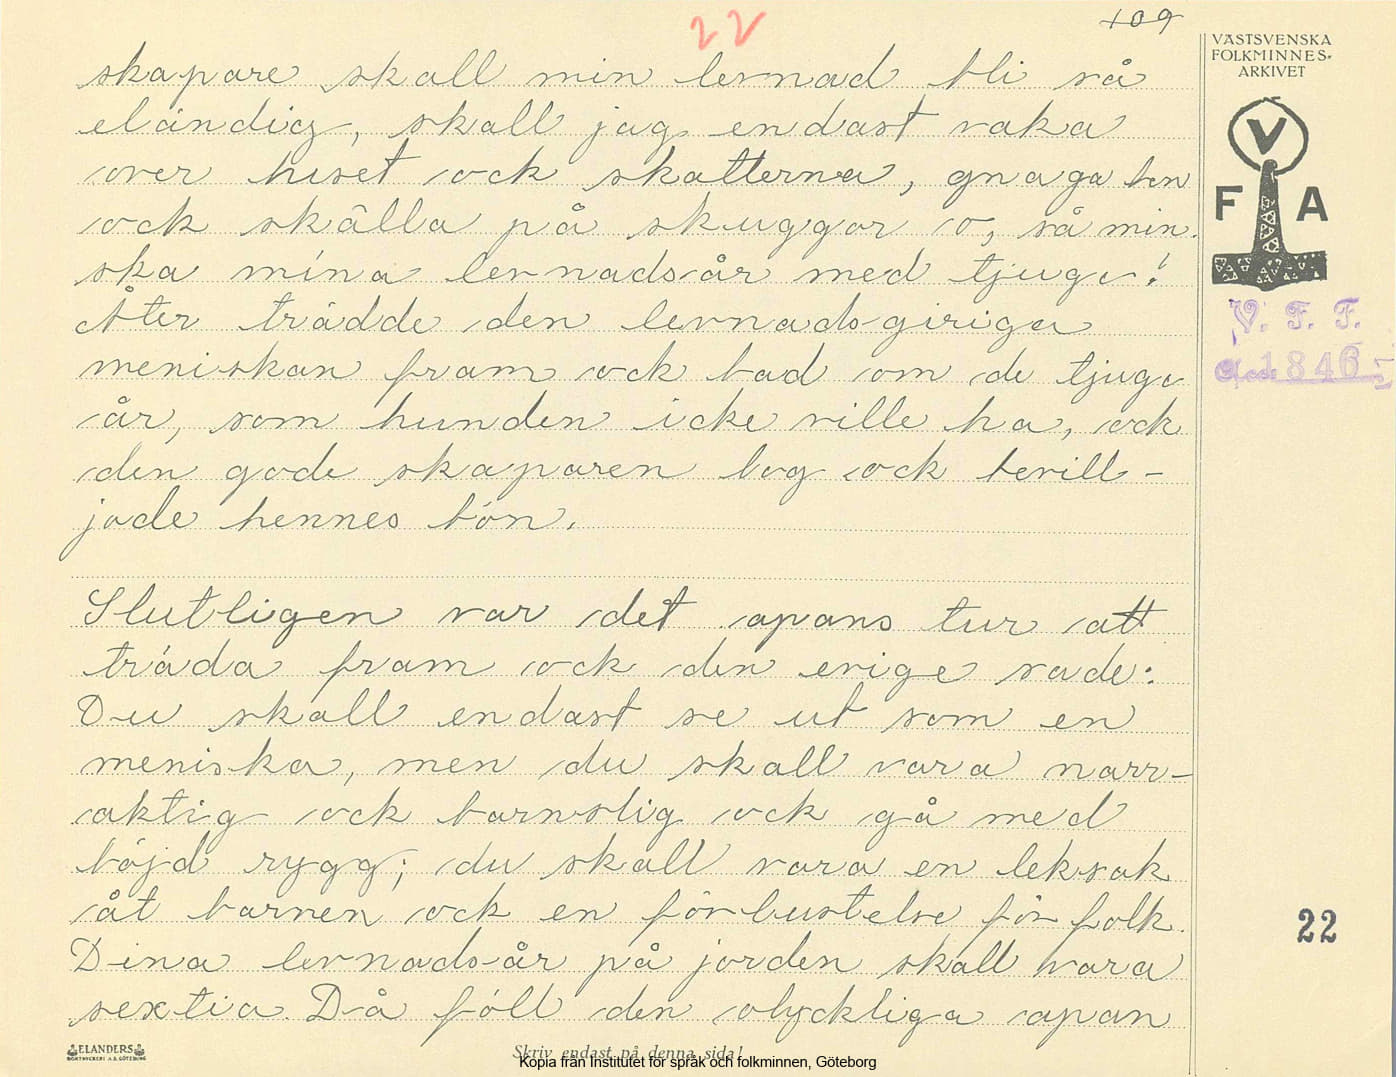 22
109
VÄSTSVENSKA
FOLKMINNES-
ARKIVET
V
F A
V. F. F.
Acc. 1846
skapare skall min levnad bli så
eländig, skall jag endast vaka
över huset ock skatterna, gnaga ben
ock skälla på skuggor o, så min-
ska mina levnadsår med tjuge!
Åter trädde den levnadsgiriga
meniskan fram ock bad om de tjuge
år, som hunden icke ville ha, ock
den gode skaparen log ock bevill-
jade hennes bön.
Slutligen var det apans tur att
träda fram ock den evige sade:
Du skall endast se ut som en
meniska, men du skall vara narr-
aktig ock barnslig ock gå med
böjd rygg; du skall vara en leksak
åt barnen ock en förbustelse för folk.
Dina levnadsår på jorden skall vara
sextia. Då föll den olyckliga apan
22
ELANDERS
BOKTRYCKERI A.B. GÖTEBORG
Skriv endast på denna sida!
Kopia från Institutet för språk och folkminnen, Göteborg